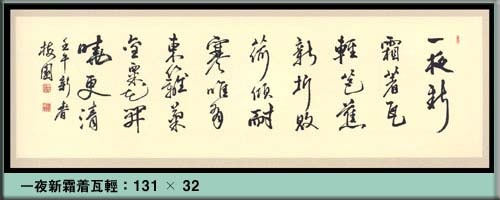 一夜新
霜著瓦
輕芭蕉
新折敗
荷傾耐
寒唯有
東籬菊
金粟花開
曉更清
壬午新春
一夜新霜着瓦輕：131 × 32